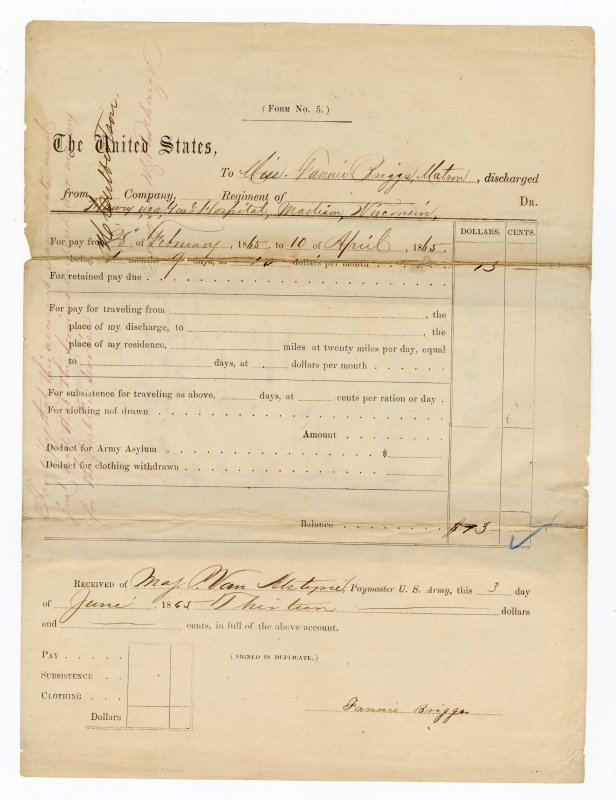 (Form No. 5.)
The United States,
To Miss. Fannie Briggs, Matron, discharged
from Company, Regiment of Dr.
Harvey U.S.A. Gen'l Hospital, Madison, Wisconsin,
DOLLARS. CENTS.
For pay from 28" of February, 1865, to 10 of April, 1865,
being 1 months 9 days, at 10 dollars per month 13
For retained pay due
For pay for traveling from , the
place of my discharge, to , the
place of my residence, miles, at twenty miles per day, equal
to days, at dollars per month
For subsistence for traveling as above, days, at cents per ration or day
For clothing not drawn
Amount
Deduct for Army Asylum $
Deduct for clothing withdrawn
Balance $13
Received of Maj. Van Alstyne, Paymaster U. S. Army, this 3 day
of June, 1865 Thirteen dollars
and cents, in full of the above account.
Pay (SIGNED IN DUPLICATE.)
Subsistence
Clothing
Dollars
Fannie Briggs
Culbertson.